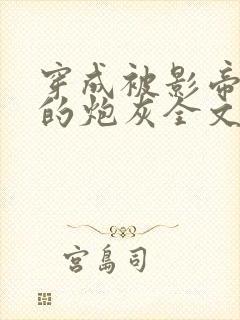 穿成被影帝
的炮灰全文
宫岛司